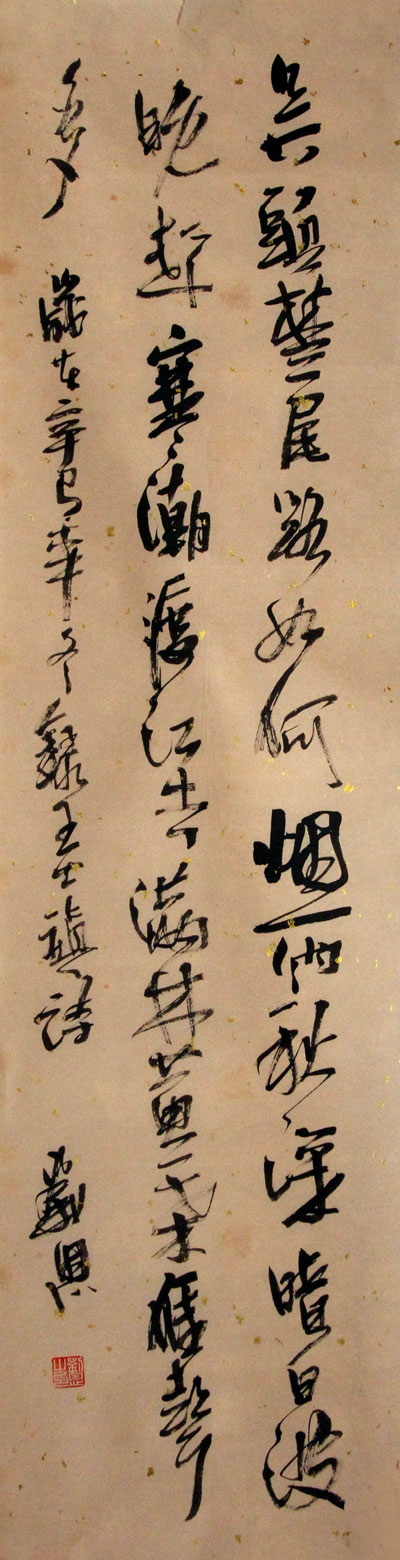 吳頭楚尾路如何烟雨秋深暗白波
晚趁寒潮渡江去滿林黃葉雁聲
多 歲在辛巳年冬錄王士禛詩